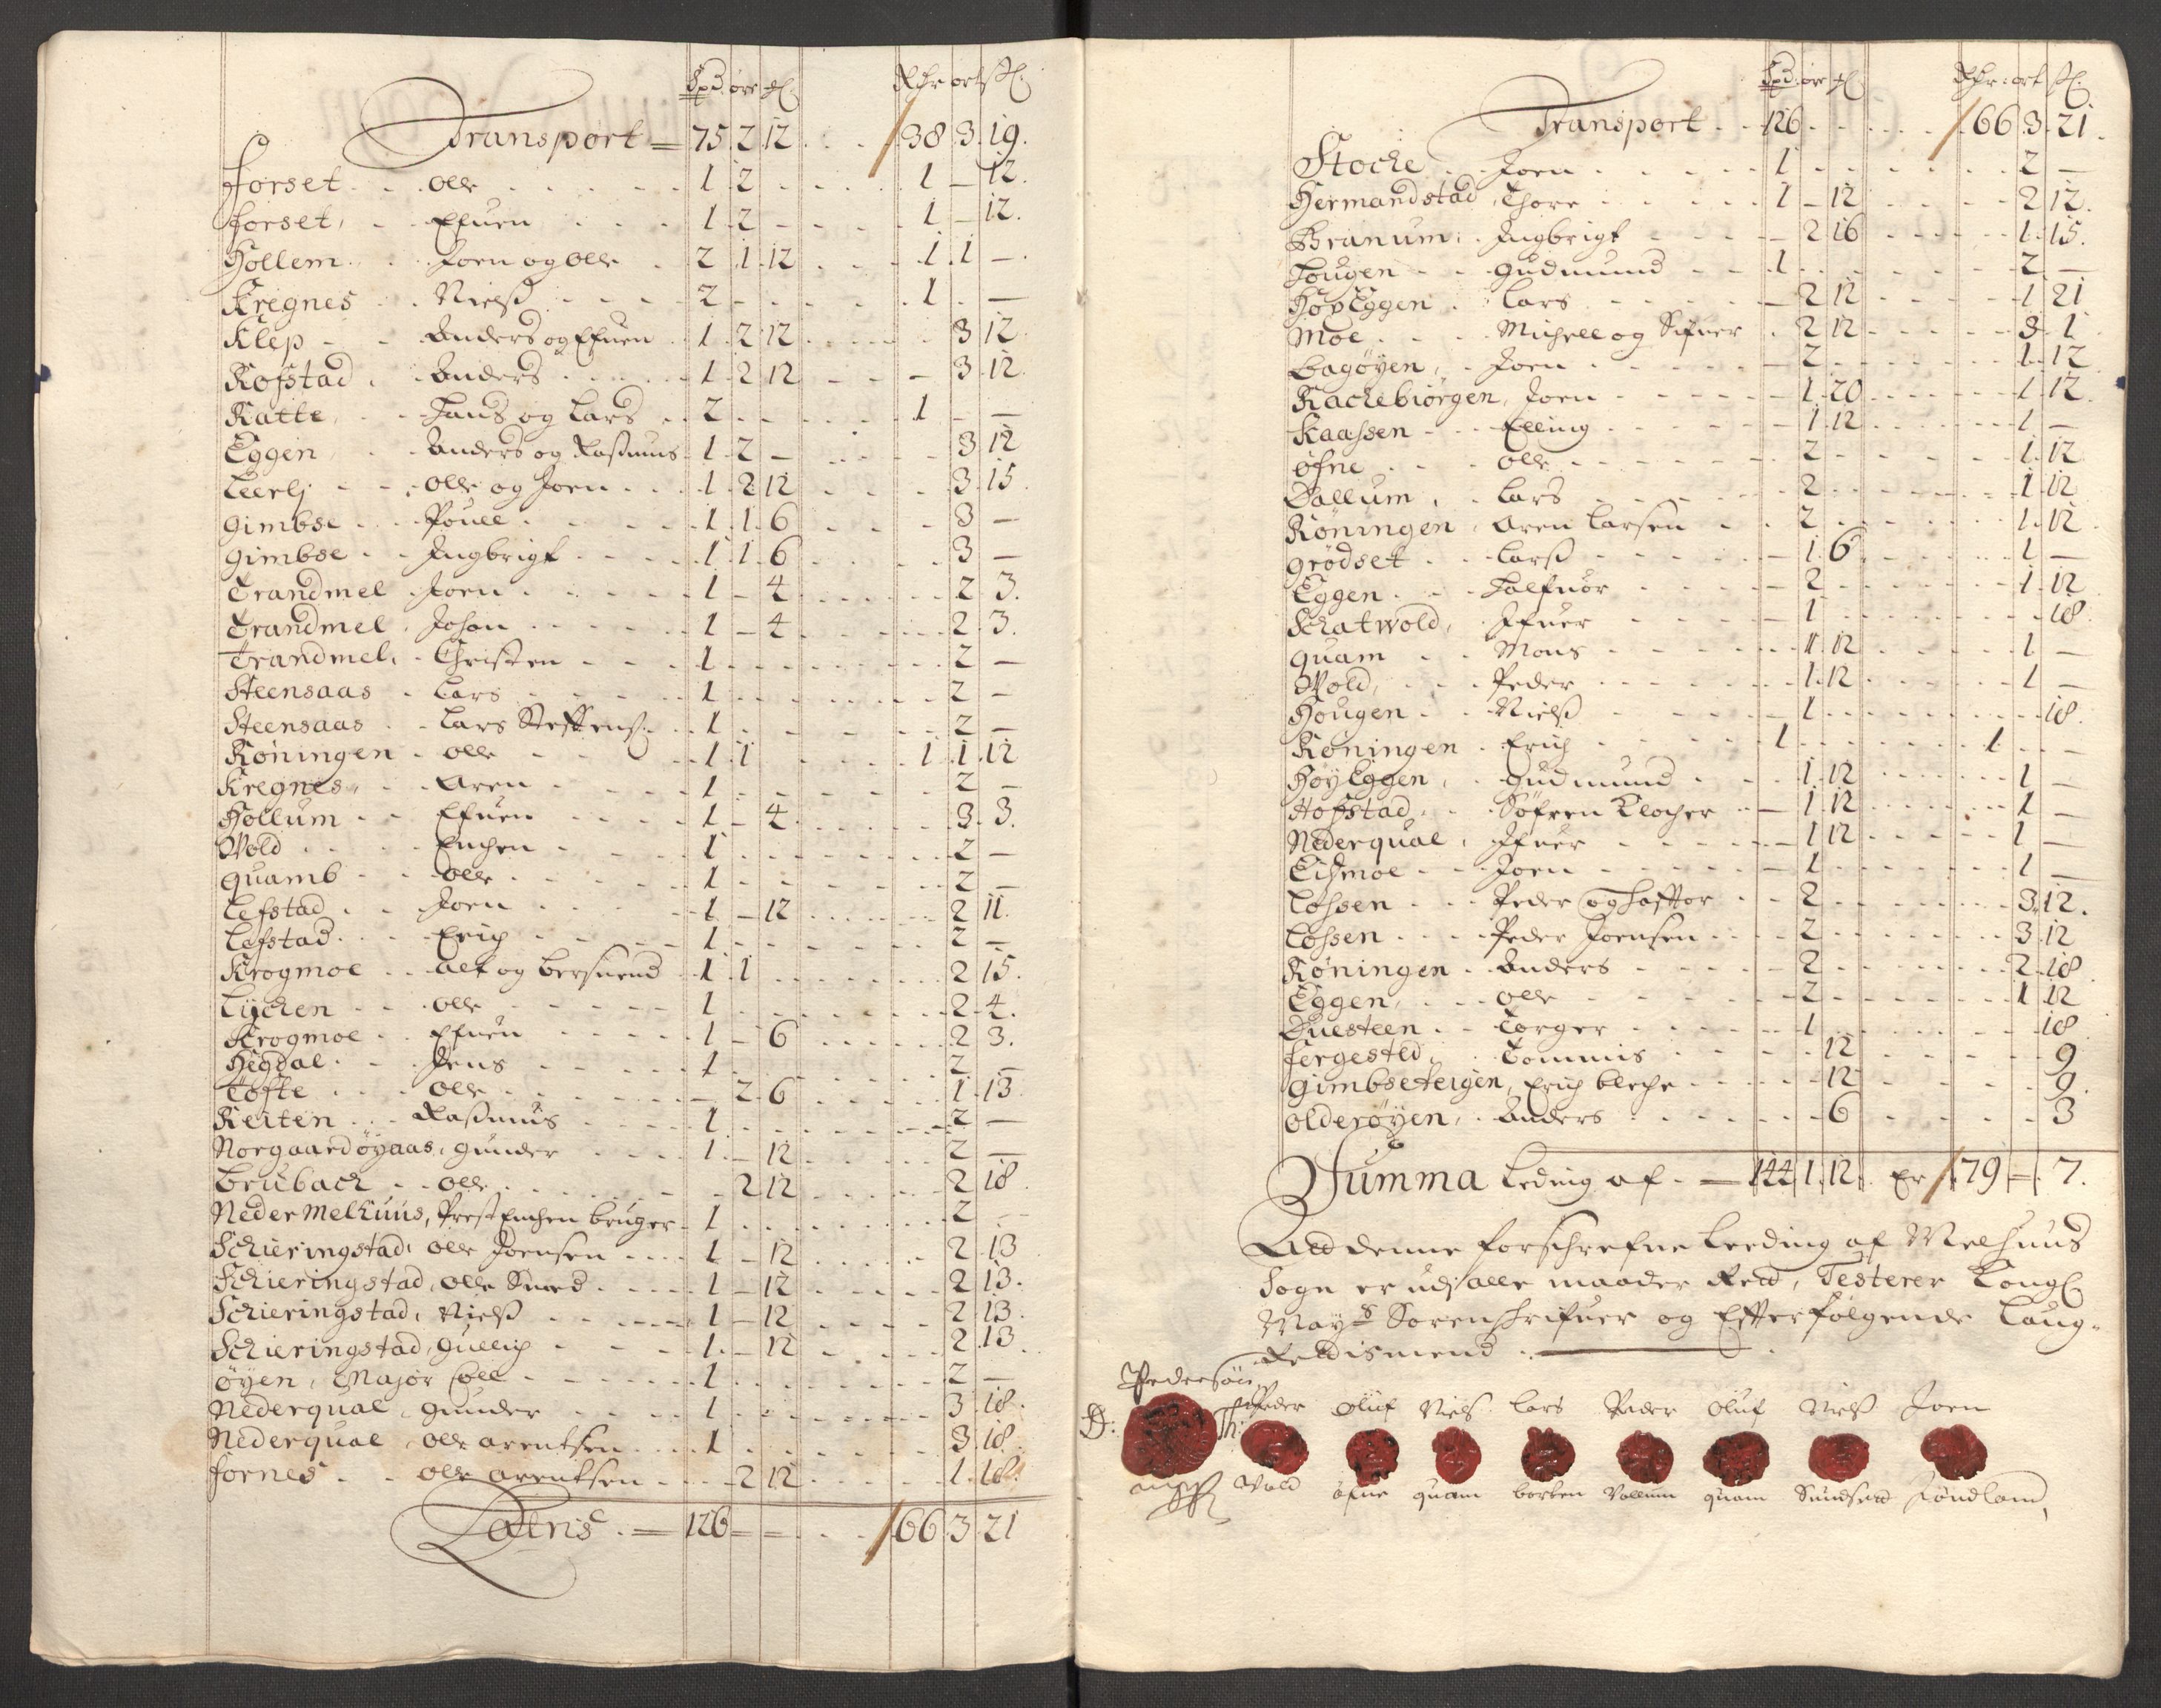 Spd. øre ₰. Rdr ort ß.
Transport = 75. 2 12 38. 3. 19.
Forset. Olle 1 2 1 — 12.
Forset, Efuen 1 2 1 — 12.
Hollem. Joen og Olle 2 1 12 1 1 —
Kregnes Nielß 2 1 —
Klep Anders og Efuen 1 2 12 3 12
Rofstad. Anders 1 2 12 — 3. 12.
Ratte, Hans og Lars 2 1 — —
Eggen Anders og Rasmus 1 2 — 3 12
Leerlj Olle og Joen 1 2 12 3 15.
Gimbse Pouell 1 1 6 3 —
Gimbse Ingbrigt 1 1 6 3 —
Trandmel Joen 1 — 4 2 3.
Trandmel. Johan 1 — 4 2. 3.
Trandmel. Christen 1 2 —
Steensaas Lars 1 2 —
Steensaas Lars Steffenß. 1 2 —
Røningen Olle 1 1 1 1 12
Kregnes Aren 1 2 —
Hollum Efuen 1 — 4 3 3.
Wold Enchen 1 2 —
Quamb Olle 1 2 —
Lefstad Joen 1 — 12 2 11.
Lefstad Erich 1 2 —
Krogmoe Alf og Bersuend 1 1 2 15.
Lÿchen Olle 1 2 4.
Krogmoe Efuen 1 — 6 2 3.
Hegdal Jens 1 2 —
Tofte Olle — 2 6 1 13
Reiten Rasmus 1 2 —
Norgaardøyaas, Gunder 1 — 12 2 —
Brubach Olle 2 12 2 18
Neder Melhuus, Prest Enchen bruger 1 2 —
Schieringstad, Olle Joensen 1 — 12 2 13
Schieringstad, Olle Smed 1 — 12 2 13.
Schieringstad, Nielß 1 — 12 2 13.
Schieringstad, Gullich 1 — 12 2. 13
Øyen, Major Coll 1 2 —
Nederqual Gunder 1 3 18.
Nederqual Olle Arentsen 1 3. 18.
Fornes Olle Arentsen 2 12 1. 18.
Latris. = 126 — — 66. 3. 21
Spd. øre ₰ Rdr: ort ß.
Transport 126 66. 3. 21.
Stocke Joen 1 2 —
Hermandstad Thore 1 — 12 2 12.
Branum. Ingbrigt — 2 16 1. 15.
Hougen Gudmund 1 2 —
HøyEggen Lars — 2 12 1 21
Moe Michell og Sifuer 2 12 3 1
Bagøyen, Joen — 2 1. 12
Rachebiørgen, Joen — 1. 20 1 12.
Kaassen Elling 1 12 1 —
Øfne Olle 2 1. 12
Dallum, Lars 2 1 12
Røningen, Aren Larsen 2 1. 12
Grødset Larß — 1. 6 1 —
Eggen Halfuor 2 1 12
Schatwold, Ifuer — 1 18.
Quam Mons 1 12 1 —
Wold, Peder 1. 12 1 —
Hougen Nielß 1 18.
Røningen Erich 1 1 —
Høy Eggen, Gudmund 1 12 1 —
Hofstad, Søfren Klocher — 1 12 1 —
Nederqual, Ifuer — 1 12 1 —
Eidsmoe Joen — 1 1 —
Lossen Peder og Haftor 2 3. 12.
Lossen Peder Joensen 2 3 12
Røningen Anders 2 2. 18
Eggen, Olle 2 1 12
Duesteen Torger 1 18
Fergested, Tommis 12 9
Gimbseteigen, Erich Bleche 12 9.
Olderøyen, Anders 6 3
Summa Leding af — 144 1. 12. Er 179 — 7.
At denne forschrefne Leeding af Melhuus
Sogn er udj alle maader Red, Testerer Kongl
Mayts Sorenschrifuer og Efterfølgende Laug-
Rettismend.
Pedersøn
Peder Oluf Niels Lars Peder Oluf Nielß Joen
Wold Øfne Quam Borten Vollum Quam Sundset Søndland,